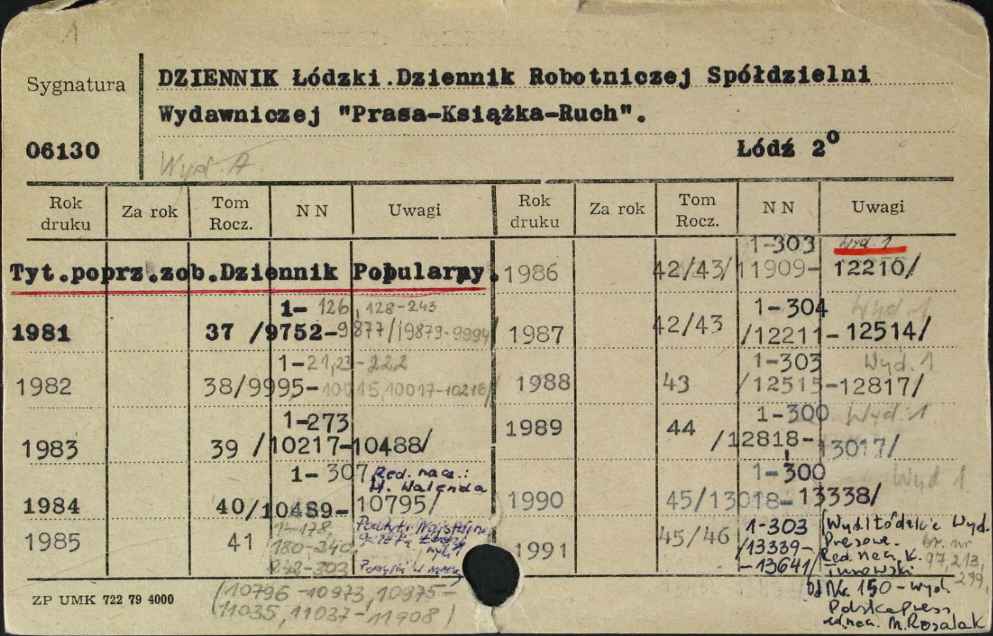 1
Sygnatura
DZIENNIK Łódzki.Dziennik Robotniczej Spółdzielni
Wydawniczej "Prasa-Książka-Ruch".
06130
Wyd. A.
Łódź 2º
Rok druku Za rok Tom Rocz. NN Uwagi Rok druku Za rok Tom Rocz. NN Uwagi
Tyt.poprz.zob.Dziennik Popularny.
1981 37 1-126, 128-243
/9752-9877/19879-9994
1982 38 1-21,23-222
/9995-10015,10017-10216/
1983 39 1-273
/10217-10488/
1984 40 1-307 Red. nacz.:
/10489-10795/
1985 41
180-240,
242-303
(10796-10973, 10975-
11035, 11037-11908)
1986 42/43 1-303 Wyd. 1
/11909-12210/
1987 42/43 1-304 Wyd. 1
/12211-12514/
1988 43 1-303 Wyd. 1
/12515-12817/
1989 44 1-300 Wyd. 1
/12818-13017/
1990 45 1-300 Wyd 1
/13018-13338/
1991 45/46 1-303
/13339-
-13641/
Wyd. Łódzkie Wyd.
Prasowe.
Red. nacz. K.
Turowski
br. nr
97, 213,
299,
Od Nru 150 - wyd.
Polskapress
red. nacz. M. Rosalak
ZP UMK 722 79 4000